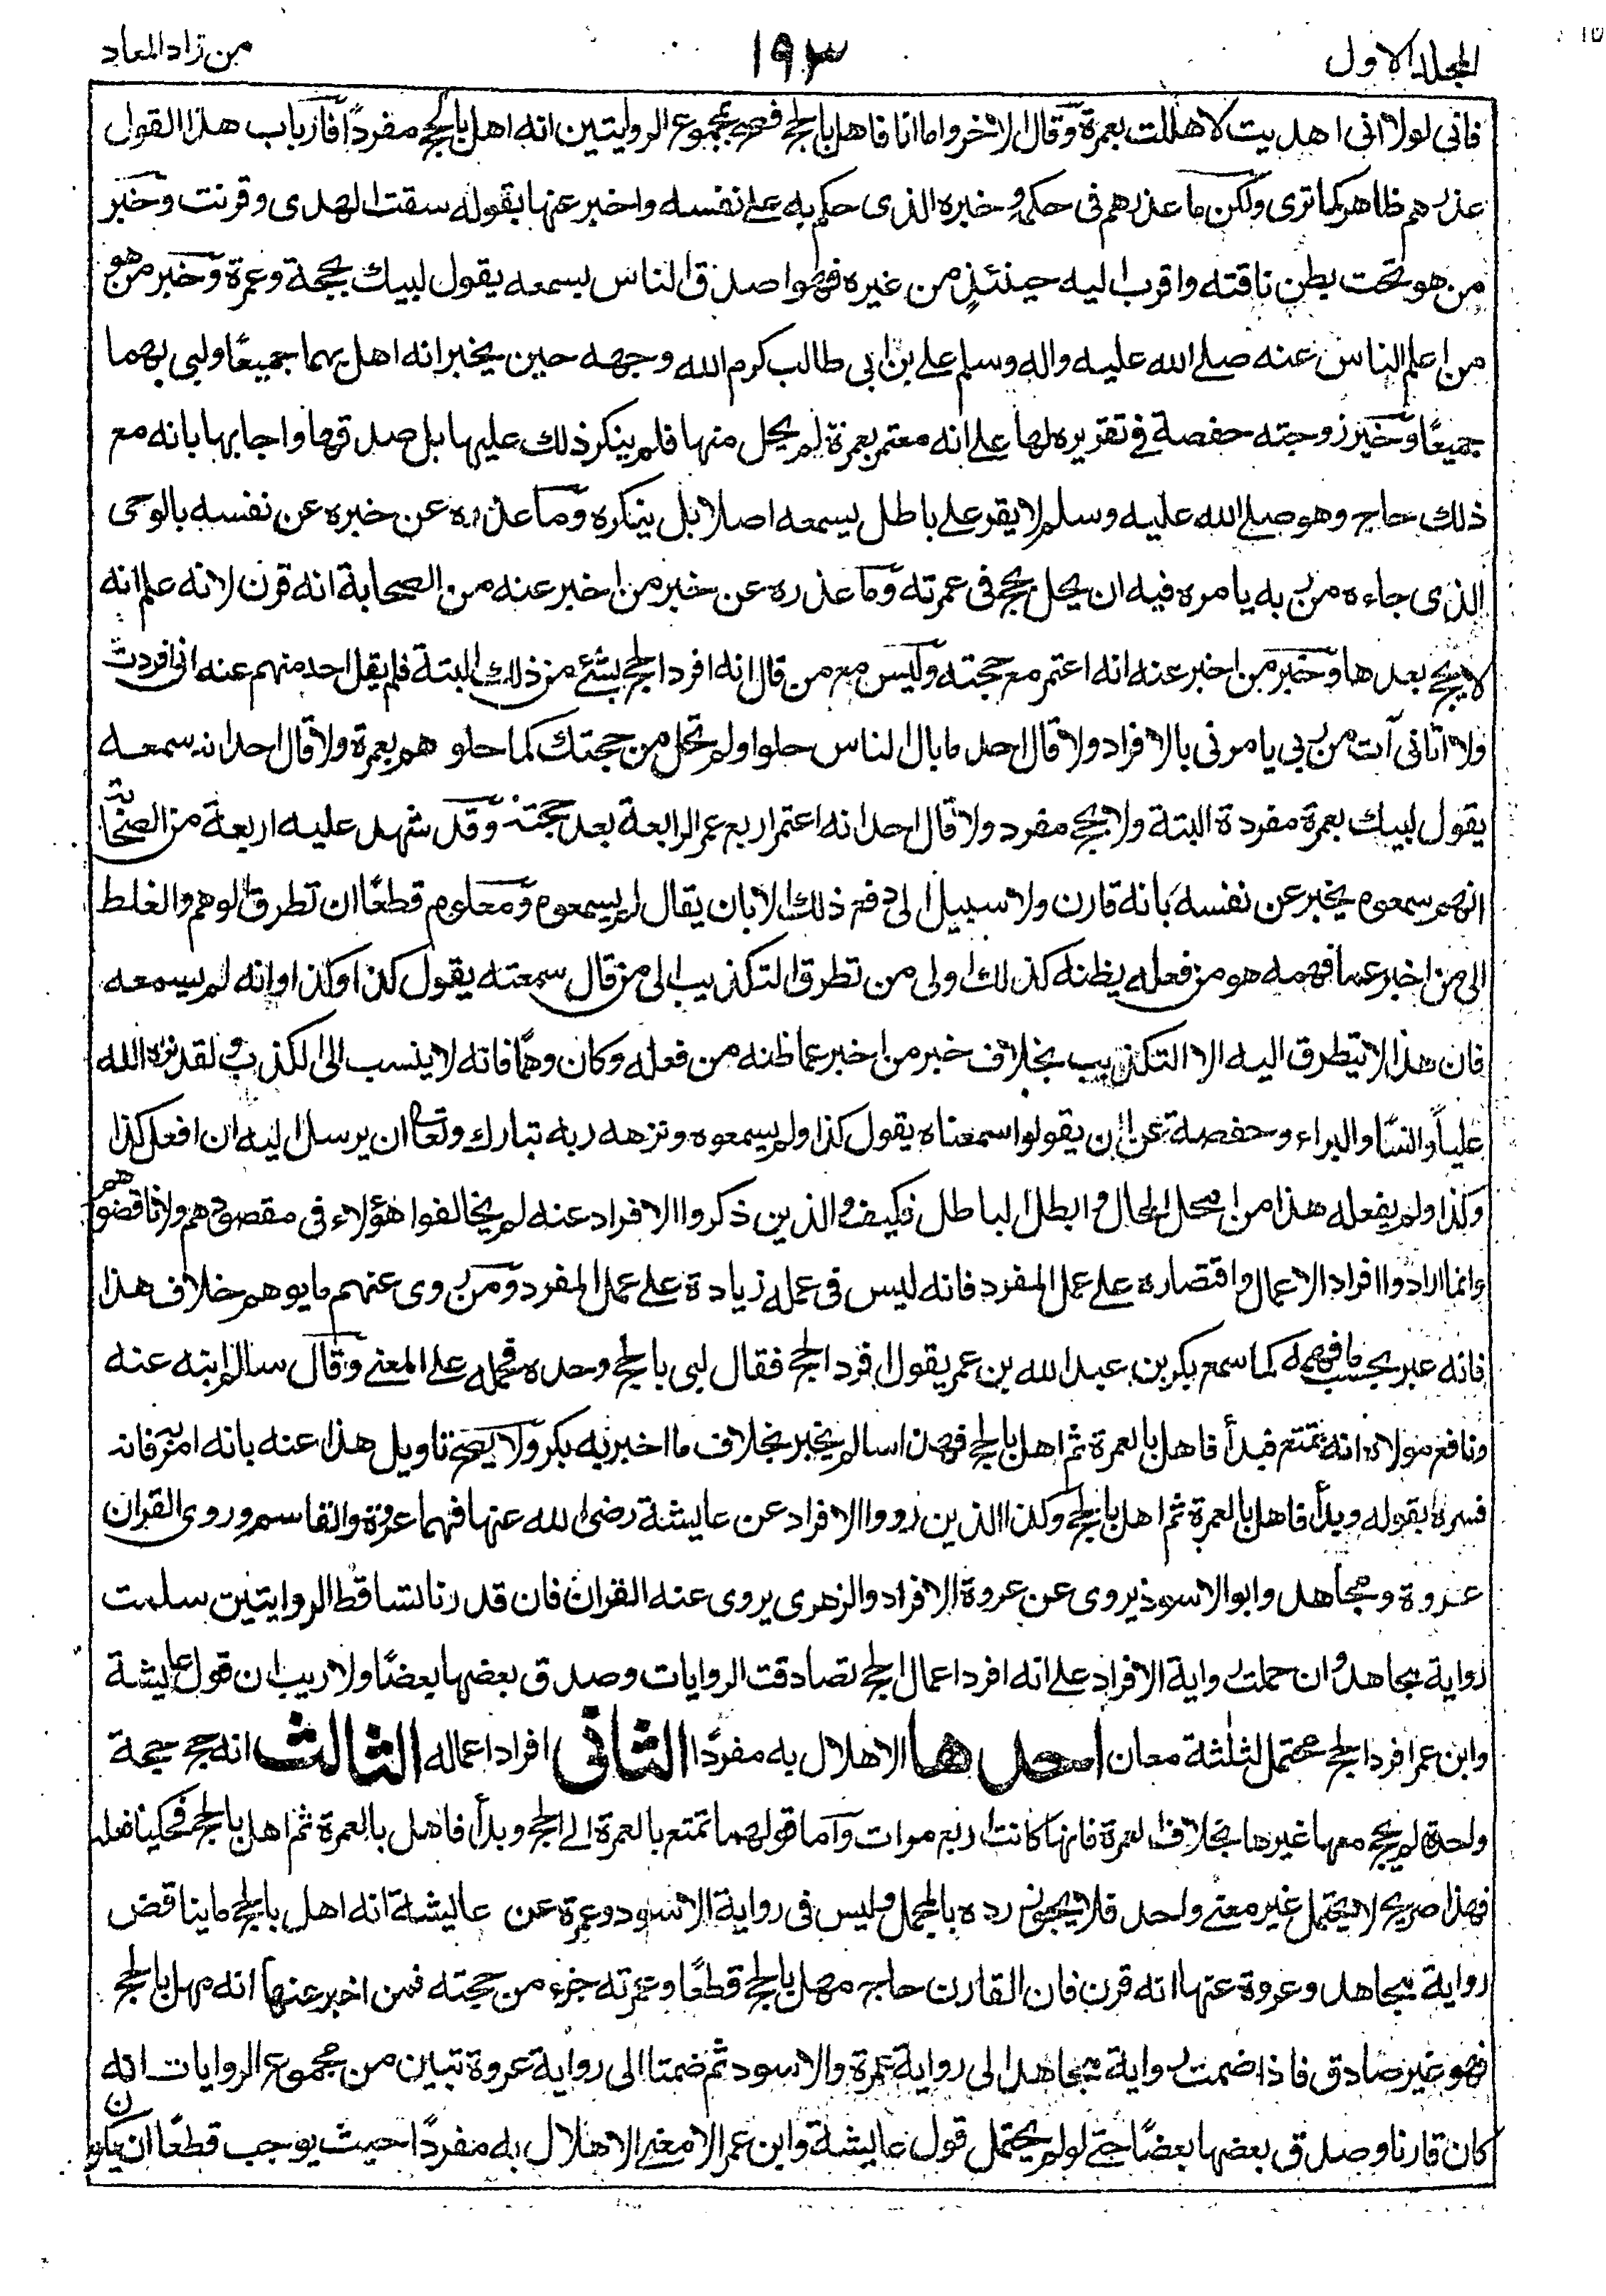 المجلد الاول
١٩٣
من زاد المعاد
فاني لولا اني اهديت لاهللت بعمرة وقال الاخر واما انا فاهل بالحج فصح بمجموع الروايتين انه اهل بالحج مفرداً فارباب هذا القول
عذرهم ظاهر كما ترى ولكن ما عذرهم في حكمه وخبره الذى حكم به على نفسه واخبر عنها بقوله سقت الهدى وقرنت وخبر
من هو تحت بطن ناقته واقرب اليه حينئذٍ من غيره فهو اصدق الناس يسمعه يقول لبيك بحجة وعمرة وخبر من هو
من اعلم الناس عنه صلے الله عليه واله وسلم علے بن ابي طالب كرم الله وجهه حين يخبر انه اهل بهما جميعًا ولبى بهما
جميعًا وخبر زوجته حفصة في تقريره لها علے انه معتمر بعمرة لم يحل منها فلم ينكر ذلك عليها بل صدقها واجابها بانه مع
ذلك حاج وهو صلے الله عليه وسلم لا يقر على باطل يسمعه اصلا بل ينكره وما عذره عن خبره عن نفسه بالوحى
الذى جاءه من ربه يامره فيه ان يحل بحج فى عمرته وما عذره عن خبر من اخبر عنه من الصحابة انه قرن لانه علم انه
لا يحج بعدها وخبر من اخبر عنه انه اعتمر مع حجته وليس مع من قال انه افرد الحج بشئ من ذلك البتة فلم يقل احد منهم عنه انى افردت
ولا اتانى آت من ربى يامرنى بالافراد ولا قال احد ما بال الناس حلوا ولم تحل من حجتك كما حلو هم بعمرة ولا قال احد انه سمعه
يقول لبيك بعمرة مفردة البتة ولا بحج مفرد ولا قال احد انه اعتمر اربع عمر الرابعة بعد حجته وقد شهد عليه اربعة من الصحابة
انهم سمعوه يخبر عن نفسه بانه قارن ولا سبيل الى دفع ذلك الا بان يقال لم يسمعوه ومعلوم قطعًا ان تطرق الوهم والغلط
الى من اخبر عما فهمه هو من فعله يظنه كذلك اولى من تطرق التكذيب الى من قال سمعته يقول كذا وكذا وانه لم يسمعه
فان هذا لا يتطرق اليه الا التكذيب بخلاف خبر من اخبر عما ظنه من فعله وكان وهمًا فانه لا ينسب الى الكذب ولقد نزه الله
علياً وانسًا والبراء وحفصة عن ان يقولوا سمعناه يقول كذا ولم يسمعوه ونزهه ربه تبارك وتعالى ان يرسل اليه ان افعل كذا
وكذا ولم يفعله هذا من امحل المحال وابطل الباطل فكيف والذين ذكروا الافراد عنه لم يخالفوا هؤلاء فى مقصودهم ولا ناقضوهم
وانما ارادوا افراد الاعمال واقتصاره علے عمل المفرد فانه ليس فى عمله زيادة على عمل المفرد ومن روى عنهم ما يوهم خلاف هذا
فانه عبر بحسب ما فهمه كما سمع بكر بن عبد الله بن عمر يقول افرد الحج فقال لبى بالحج وحده فحمله على المعنے وقال سالم ابنه عنه
ونافع مولاه انه تمتع فبدأ فاهل بالعمرة ثم اهل بالحج فهذا سالم يخبر بخلاف ما اخبر به بكر ولا يصح تاويل هذا عنه بانه امر به فانه
فسره بقوله وبدأ فاهل بالعمرة ثم اهل بالحج وكذا الذين رووا الافراد عن عايشة رضى الله عنها فهما عروة والقاسم وروى القران
عنها عروة ومجاهد وابو الاسود يروى عن عروة الافراد والزهرى يروى عنه القران فان قدرنا تساقط الروايتين سلمت
رواية مجاهد وان حملت رواية الافراد علے انه افرد اعمال الحج تصادقت الروايات وصدق بعضها بعضًا ولا ريب ان قول عايشة
وابن عمر افرد الحج محتمل لثلثة معان احدها الاهلال به مفردًا الثانى افراد اعماله الثالث انه حج حجة
واحدة لم يحج معها غيرها بخلاف العمرة فانها كانت اربع مرات واما قولهما تمتع بالعمرة الے الحج وبدأ فاهل بالعمرة ثم اهل بالحج فحكيا فعله
فهذا صريح لا يحتمل غير معنے واحد فلا يجوز رده بالمجمل وليس فى رواية الاسود وعمرة عن عايشة انه اهل بالحج ما يناقض
رواية مجاهد وعروة عنها انه قرن فان القارن حاج مهل بالحج قطعًا وعمرته جزء من حجته فمن اخبر عنها انه مهل بالحج
فهو غير صادق فاذا ضمت رواية مجاهد الى رواية عمرة والاسود ثم ضمتا الى رواية عروة تبين من مجموع الروايات انه
كان قارنا وصدق بعضها بعضًا حتے لو لم يحتمل قول عايشة وابن عمر الا معنے الاهلال به مفردًا حيث يوجب قطعًا ان يكون